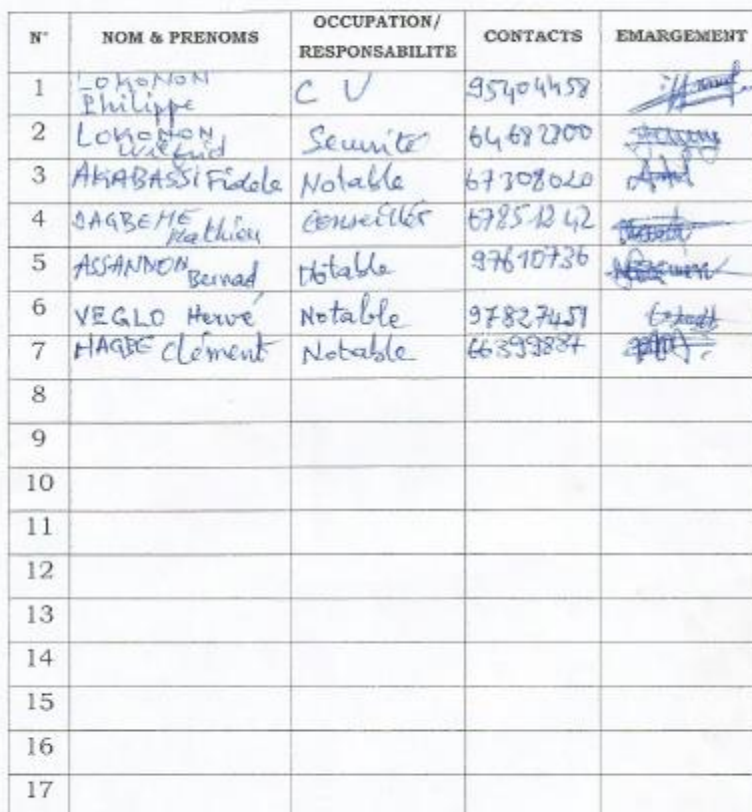 N° NOM & PRENOMS OCCUPATION/ RESPONSABILITE CONTACTS EMARGEMENT
1 LOKONON Philippe C V 95404458
2 LOKONON Wilfrid Securité 64682200
3 AKABASSI Fidele Notable 67308020
4 DAGBEHE Mathieu Conseiller 67851242
5 ASSANNON Bernad Notable 97610736
6 VEGLO Hervé Notable 97827451
7 HAGBE Clément Notable 66399884
8
9
10
11
12
13
14
15
16
17